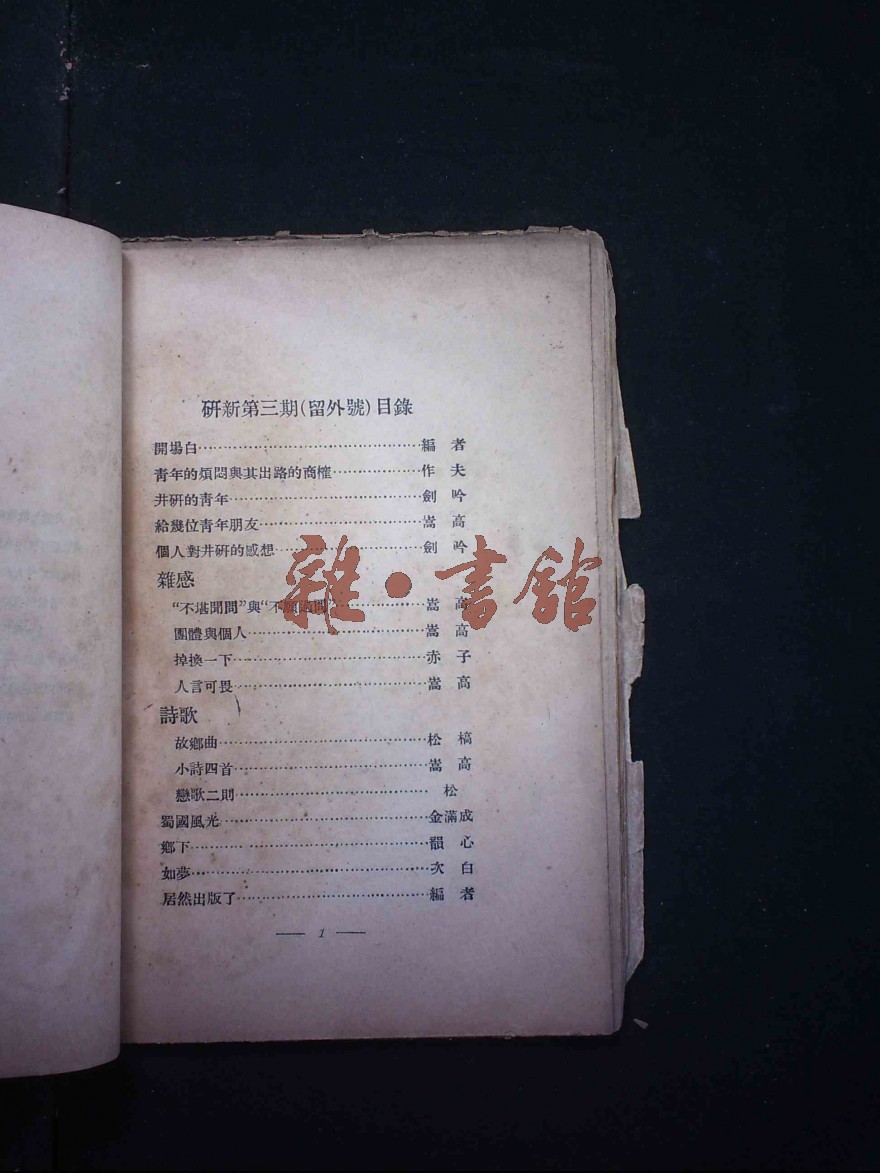 研新第三期(留外號)目錄
開場白……………………………………編 者
青年的煩悶與其出路的商榷……………作 夫
井研的青年………………………………劍 吟
給幾位青年朋友…………………………嵩 高
個人對井研的感想………………………劍 吟
雜感
“不堪聞問”與“不 …………嵩 高
團體與個人……………………………嵩 高
掉換一下………………………………赤 子
人言可畏………………………………嵩 高
詩歌
故鄉曲…………………………………松 槁
小詩四首………………………………嵩 高
戀歌二則………………………………松
蜀國風光…………………………………金滿成
鄉下………………………………………韻 心
如夢………………………………………次 白
居然出版了………………………………編 者
— 1 —
雜·書館